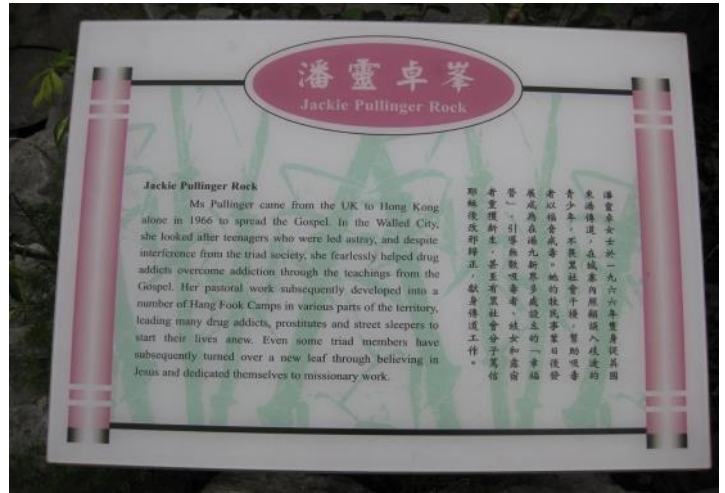 潘靈卓峯
Jackie Pullinger Rock
Jackie Pullinger Rock
Ms Pullinger came from the UK to Hong Kong
alone in 1966 to spread the Gospel. In the Walled City,
she looked after teenagers who were led astray, and despite
interference from the triad society, she fearlessly helped drug
addicts overcome addiction through the teachings from the
Gospel. Her pastoral work subsequently developed into a
number of Hang Fook Camps in various parts of the territory,
leading many drug addicts, prostitutes and street sleepers to
start their lives anew. Even some triad members have
subsequently turned over a new leaf through believing in
Jesus and dedicated themselves to missionary work.
潘靈卓女士於一九六六年隻身從英國
來港傳道，在城寨內照顧誤入歧途的
青少年，不畏黑社會干擾，幫助吸毒
者以福音戒毒。她的牧民事業日後發
展成為在港九新界多處設立的「幸福
營」，引導無數吸毒者、妓女和露宿
者重獲新生，甚至有黑社會分子篤信
耶穌後改邪歸正，獻身傳道工作。